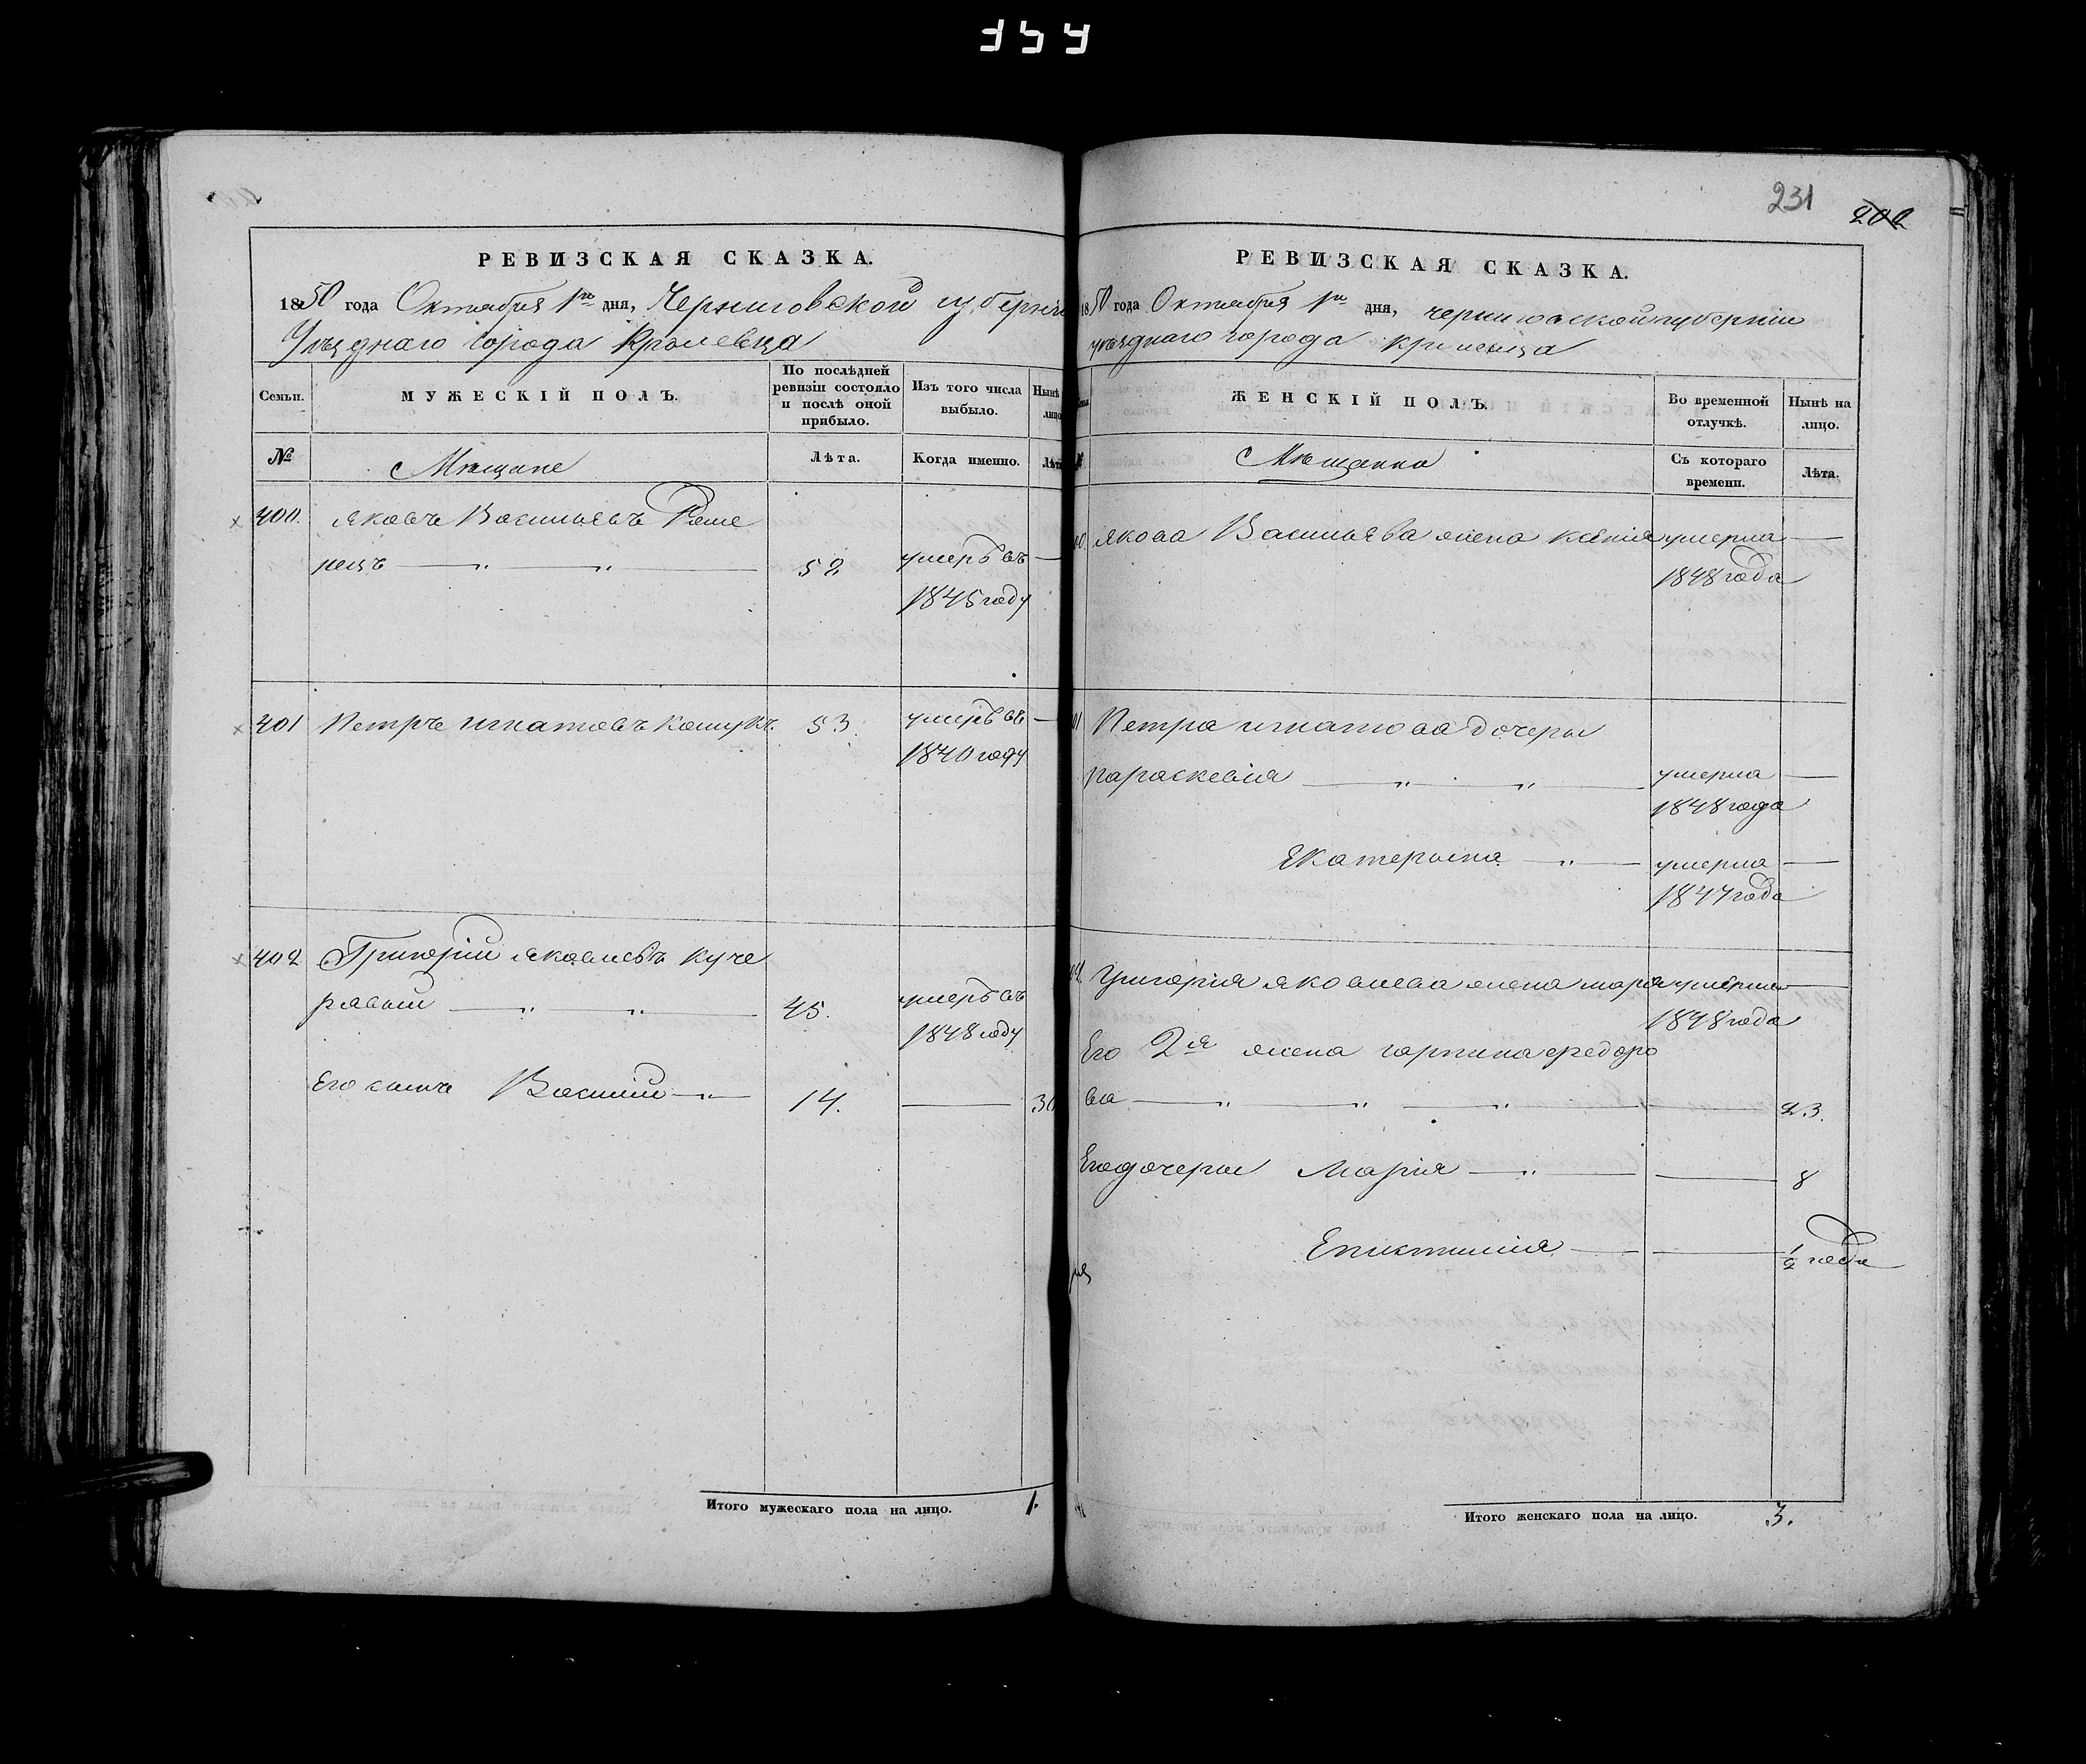 231
202
РЕВИЗСКАЯ СКАЗКА.
1850 года Октября 1го дня, Черниговской губерніи
Уѣзднаго города Кролевца
Семьи.
МУЖЕСКІЙ ПОЛЪ.
По послѣдней
ревизіи состояло
и послѣ оной
прибыло.
Изъ того числа
выбыло.
Нынѣ
лицо
№
Мѣщане
Лѣта.
Когда именно.
Лѣта
400. Яковъ Васильевъ Реше
нецъ — „ — „ — 52 умеръ въ —
1845 году
401 Петръ Игнатовъ 53. умеръ въ —
1840 году
402 Григорій Яковлевъ Куче
рявый — „ — „ — 45. умеръ въ
1848 году
Его сынъ Василій — „ — 14. — 30
Итого мужескаго пола на лицо. 1.
РЕВИЗСКАЯ СКАЗКА.
1850 года Октября 1го дня, Черниговской губерніи
уѣзднаго города Кролевца
ЖЕНСКІЙ ПОЛЪ.
Во временной
отлучкѣ.
Нынѣ на
лицо.
Мѣщанки
Съ котораго
времени.
Лѣта.
Якова Васильева жена Ксенія умерла —
1848 года
Петра Игнатова дочеры
Параскевія — „ — „ — умерла —
1848 года
Екатерына — „ — умерла —
1847 года
Григорія Яковлева жена Марія умерла —
1848 года
Его 2я жена Гарпина Федоро
ва — „ — „ — „ — 23.
Его дочеры Марія — „ — 8
Епистимія — 1/2 года
Итого женскаго пола на лицо. 3.